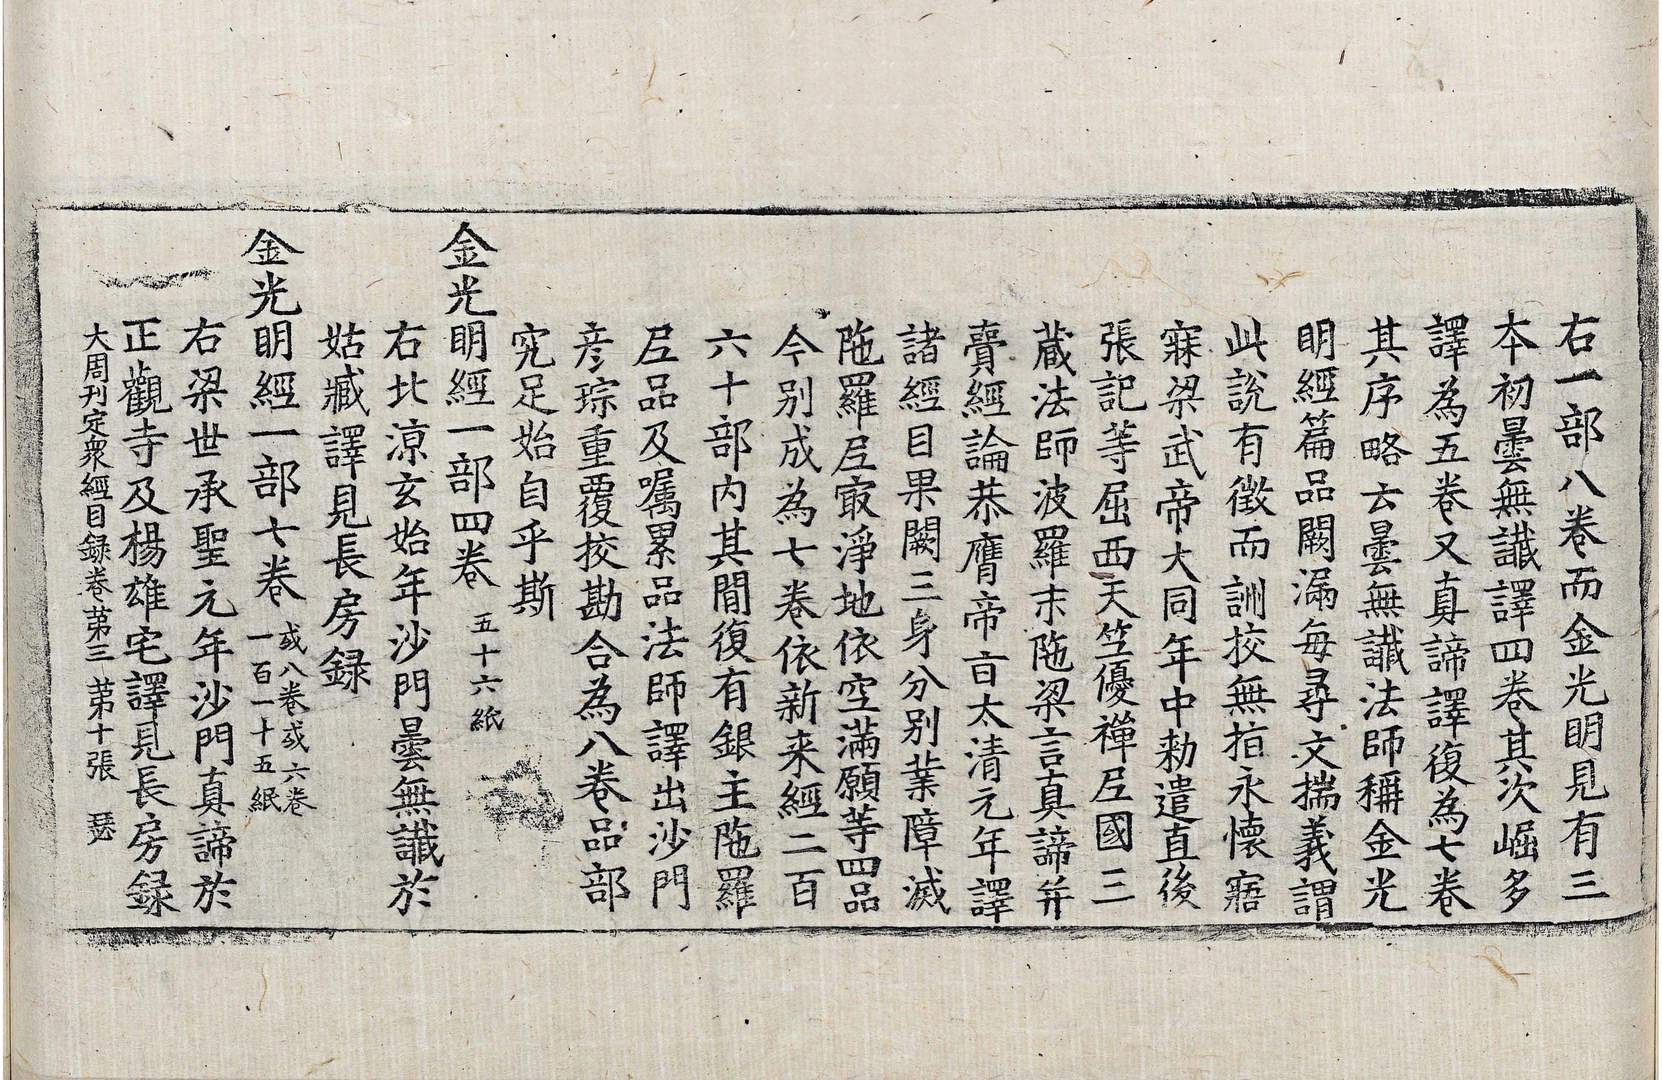 右一部八卷而金光明見有三
本初曇無讖譯四卷其次崛多
譯為五卷又真諦譯復為七卷
其序略云曇無讖法師稱金光
明經篇品闕漏每尋文揣義謂
此說有徵而訓挍無指永懷寤
寐梁武帝大同年中勑遣直後
張記等屈西天竺優禪尼國三
藏法師波羅末陁梁言真諦并
賷經論恭膺帝旨太清元年譯
諸經目果闕三身分別業障滅
陁羅尼㝡淨地依空滿願等四品
今別成為七卷依新来經二百
六十部內其間復有銀主陁羅
尼品及囑累品法師譯出沙門
彥琮重覆挍勘合為八卷品部
究足始自乎斯
金光明經一部四卷 五十六紙
右北涼玄始年沙門曇無讖於
姑臧譯見長房録
金光明經一部七卷 或八卷或六卷
一百一十五紙
右梁世承聖元年沙門真諦於
正觀寺及楊雄宅譯見長房録
大周刊定衆經目録卷第三 第十張 瑟